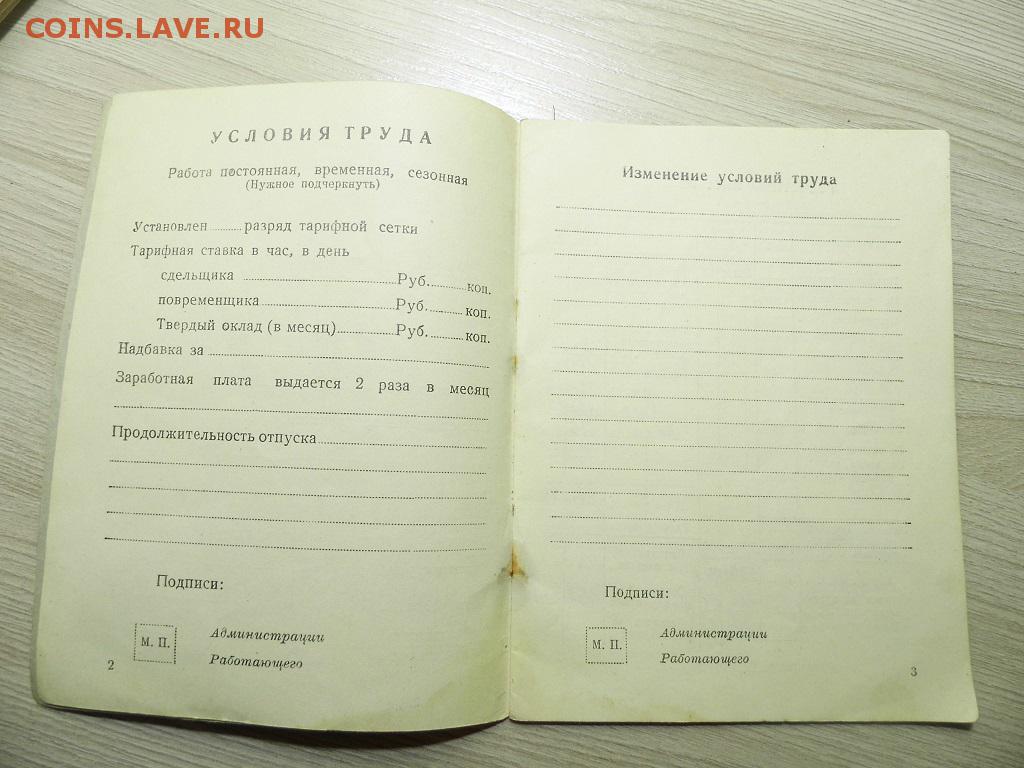 COINS.LAVE.RU
УСЛОВИЯ ТРУДА
Работа постоянная, временная, сезонная
(Нужное подчеркнуть)
Установлен ......... разряд тарифной сетки
Тарифная ставка в час, в день
сдельщика ........................ Руб. ......... коп.
повременщика ........................ Руб. ......... коп.
Твердый оклад (в месяц) ............... Руб. ......... коп.
Надбавка за ........................
Заработная плата выдается 2 раза в месяц
Продолжительность отпуска ........................
Подписи:
М. П.
Администрации
Работающего
2
Изменение условий труда
Подписи:
М. П.
Администрации
Работающего
3